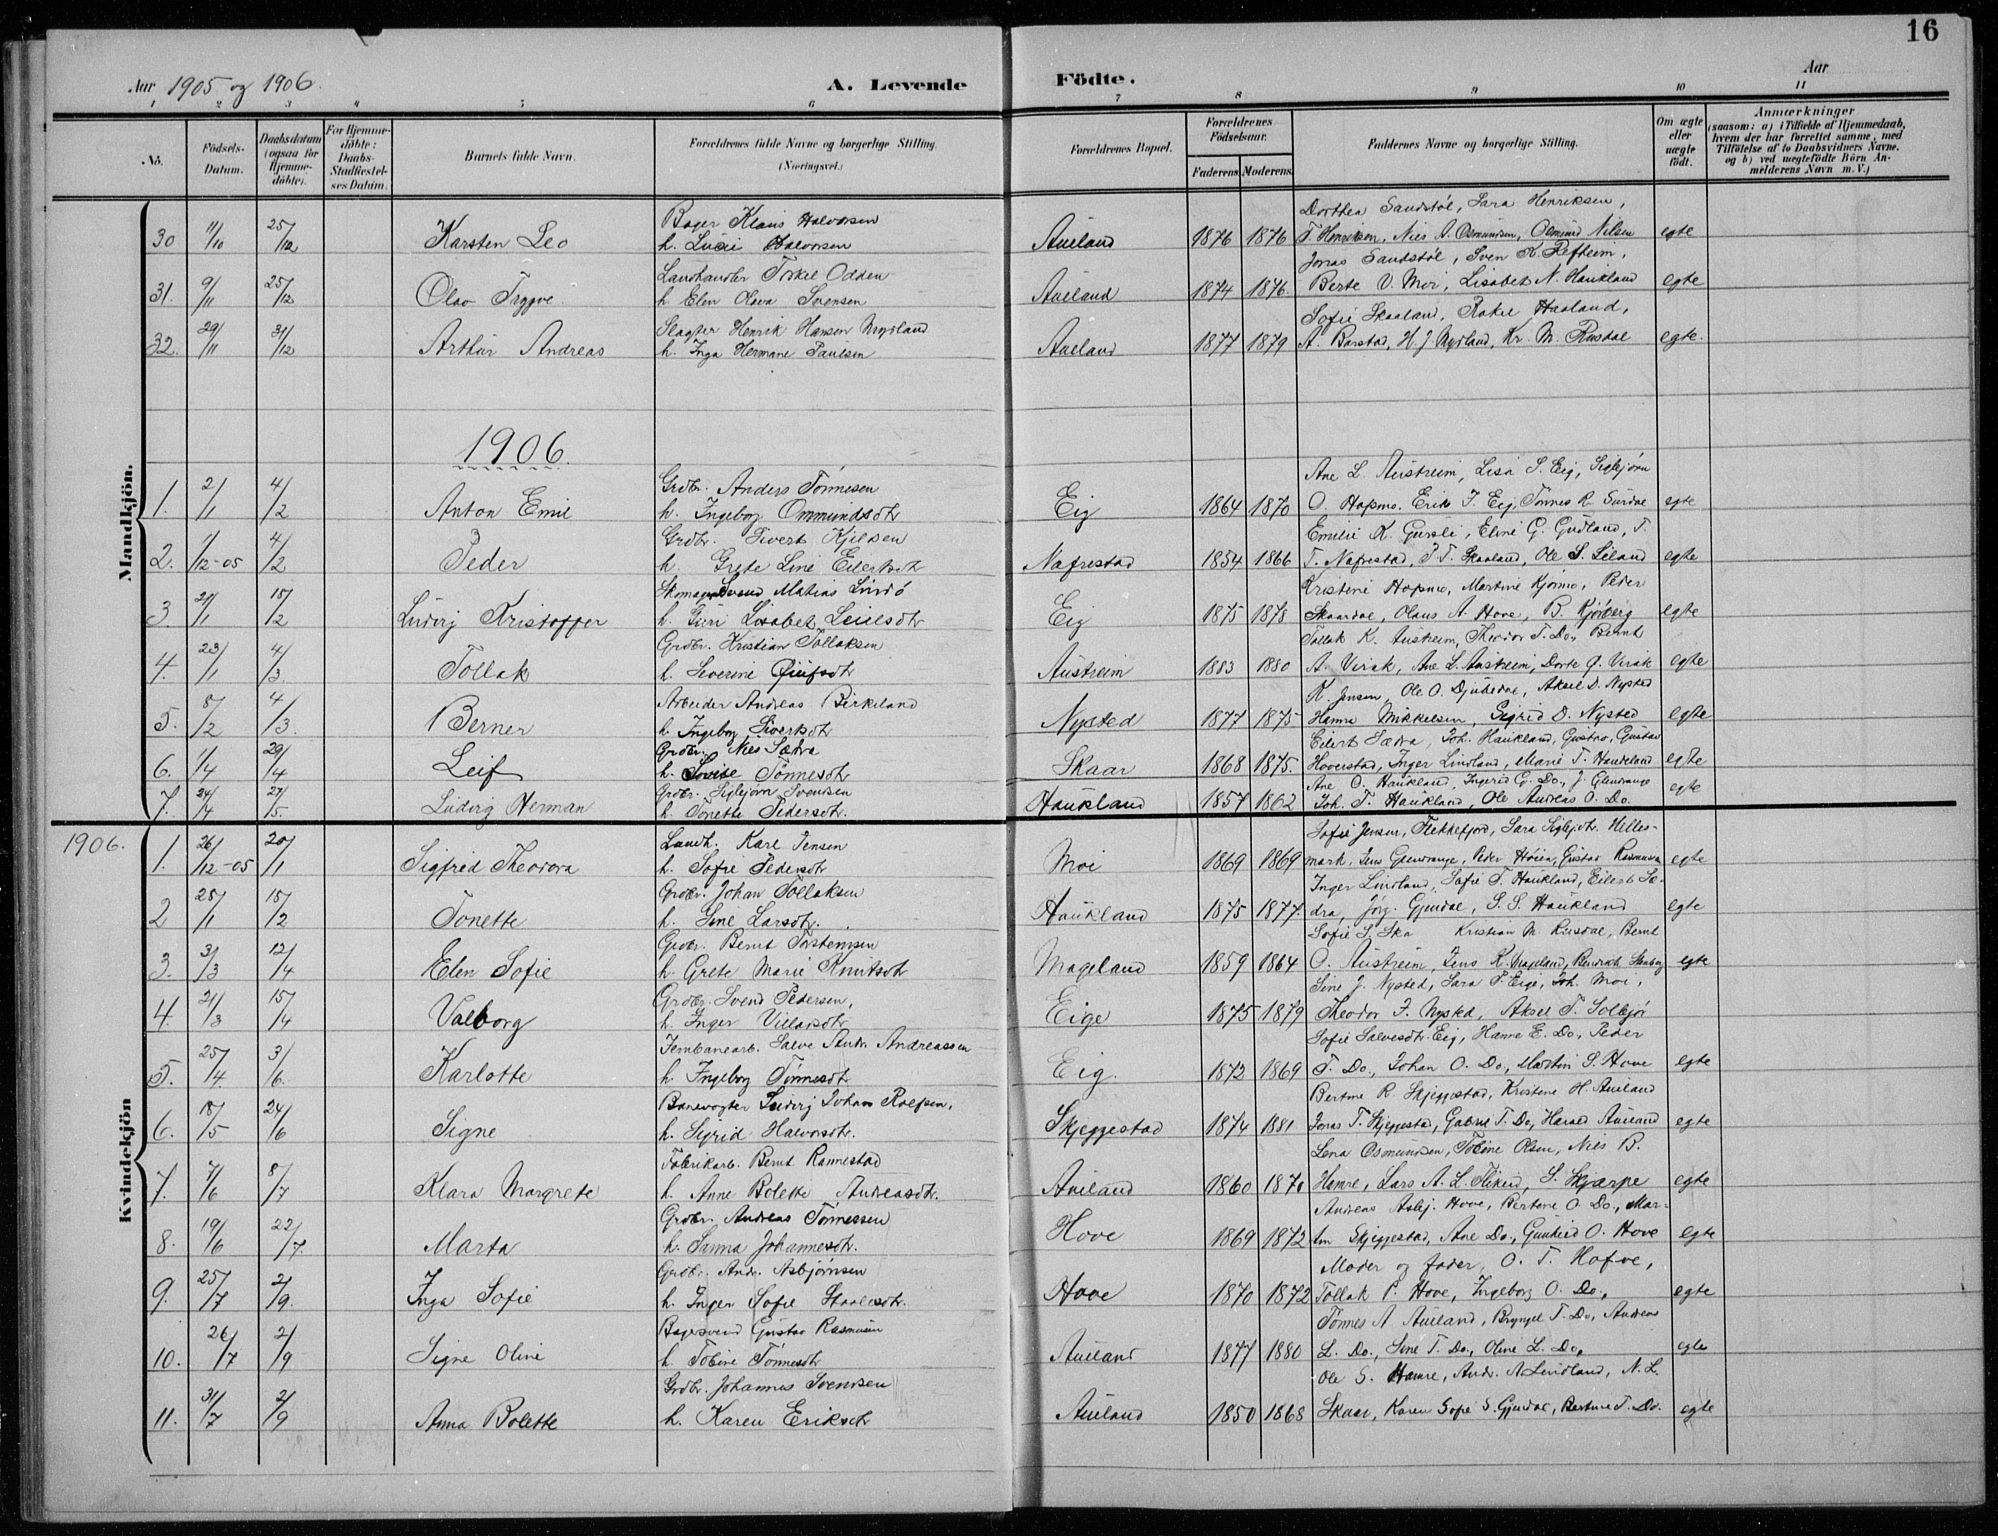 16
Aar 1905 og 1906.
A. Levende Födte.
Aar
1 2 3 4 5 6 7 8 9 10 11
No.
Födsels-Datum.
Daabsdatum (ogsaa for Hjemme-döbte).
For Hjemme-döbte: Daabs-Stadfæstel-ses Datum.
Barnets fulde Navn.
Forældrenes fulde Navne og borgerlige Stilling. (Næringsvei.)
Forældrenes Bopæl.
Forældrenes Födselsaar.
Faderens. Moderens.
Faddernes Navne og borgerlige Stilling.
Om ægte eller uægte födt.
Anmærkninger
(saasom: a) i Tilfælde af Hjemmedaab, hvem der har forrettet samme, med Tilföielse af to Daabsvidners Navne. og b) ved uægtefödte Börn An-melderens Navn m. V.)
Mandkjön.
Bager Klaus Halvorsen Dorthea Sandstøl, Sara Henriksen,
30 11/10 25/12 Karsten Leo h. Halvorsen Aueland 1876 1876 T. Henriksen, Nils A. Osmundsen, Osmund Nilsen egte
Landhandler Torkel Odden Jonas Sandstøl, Sven K. Refheim,
31. 9/11 25/12 Olav Tryggve h. Elen Olava Svensen Aueland 1874 1876. Berte V. Moi, Lisabet N. Haukland egte
Slagter Henrik Hansen Mydland Sofie Skaaland, Rakel Haaland,
32. 29/11 31/12 Arthur Andreas h. Inga Hermane Paulsen Aueland 1877 1879 A. Barstad, H. J. Mydland, Kr. M. Rusdal egte.
1906.
Grdbr. Anders Tønnesen Ane L. Austreim, Lisa S. Eig, Siglejørn
1. 2/1 4/2 Anton Emil h. Ingeborg Ommundsdtr Eig 1864 1870 O. Hopmo. Erik T. Eig, Tønnes R. Surdal egte
Grdbr. Sivert Kjelsen Emilie K. Gursli, Eline G. Gudland, T.
2. 1/12-05 4/2 Peder h. Grete Line Eilertsdt Nafrestad 1854 1866 T. Nafrestad, P. T. Skaaland, Ole S. Leland egte
Skomager Svend Matias Lindø Kristine Hopmo, Martine Kjørmo, Peder
3. 21/1 15/2 Ludvig Kristoffer h. Guri Lisabet Eig 1875 1878 Skaardal, Olaus A. Hove, B. Kjørberg egte
Grdbr. Kristian Tollaksen Tollak K. Austreim, Theodor T. Do., Bernt
4. 23/1 4/3 Tollak h. Severine Austreim 1883 1880 A. Virak, Ane L. Austreim, Dorte G. Virak egte
Arbeider Andreas Birkeland K. Jensen, Ole O. Djubedal, Aksel D. Nysted
5. 8/2 4/3. Berner h. Ingeborg Sivertsdt Nysted 1877 1875 Hanna Mikkelsen, Sigrid D. Nysted egte
Grdbr. Nils Sædra Eilert Sædra, Joh. Haukland, Gustav, Gustav
6. 1/4 29/4 Leif h. Lovise Tønnesdtr Skaar 1868 1875. Hoverstad, Inger Lindland, Marie T. Haukeland egte
Grdbr. Siglejørn Svendsen Ane O. Haukland, Ingrid G. Do., J. Glendrange
7. 24/4 27/5. Ludvig Herman h. Tonette Pedersdtr. Haukland 1857 1862 Joh. T. Haukland, Ole Andreas O. Do. egte
Kvindekjön
1906. Landh. Karl Jensen Sofie Jensen, Flekkefjord, Sara Siglejdtr. Helles-
1. 26/12-05 20/1 Sigfrid Theodora h. Sofie Pedersdtr Moi 1869 1869 mark, Jens Glendrange, Peder Høien, Gustav Rasmussen egte
Grdbr. Johan Tollaksen Inger Lindland, Sofie T. Haukland, Eilert Sæ-
2 25/1 15/2 Tonette h. Sine Larsdtr. Haukland 1875 1877. dra, Jørg. Gjendal, S. S. Haukland egte
Grdbr. Bernt Torstensen Sofie S. Ska Kristian M. Rusdal, Bernt
3. 3/3 12/4 Elen Sofie h. Grete Marie Knutsdtr Mageland 1859 1864 O. Austreim, Jens K. Mageland, egte
Grdbr. Svend Pedersen, Sine J. Nysted, Sara P. Eige, Joh. Moi,
4. 21/3 15/4 Valborg h. Inger Villasdt Eige 1875 1879 Theodor J. Nysted, Aksel T. Solbjør
Jernbanearb. Salve Andr. Andreassen Sofie Salvesdtr. Eig, Hanna E. Do, Peder
5. 25/4 3/6. Karlotte h. Ingeborg Tønnesdt Eig. 1872 1869 T. Do, Johan O. Do, Martin S. Hove egte
Banevogter Ludvig Johan Rolfsen, Bertine R Skjeggestad, Kristene H. Aueland
6. 18/5 24/6 Signe h. Sigrid Halvorsdtr. Skjeggestad 1874 1881 Jonas T. Skjeggestad, Gabriel T. Do, Harald Aueland egte
Fabrikarb. Bernt Rannestad Lena Osmundsen, Tobine Olsen, Nils B.
7. 7/6 8/7 Klara Margrete h. Anne Bolette Andreasdtr. Aueland 1860 1870 Hamre, Lars A. L. Fliken, S. Skjærpe egte
Grdbr. Andreas Tønnessen Andreas Asbj. Hove, Bertine O. Do., Mar-
8. 19/6 22/7. Marta h. Sanna Johannesdtr. Hove 1869 1872 tin Skjeggestad, Ane Do., Gunhild O. Hove egte
Grdbr. Andr. Asbjørnsen Moder og fader, O. T. Hofve,
9. 25/7 2/9. Inga Sofie h. Inger Sofie Staalesdtr. Hove 1870 1872 Tollak P. Hove, Ingeborg O. Do, egte
Bagersvend Gustav Rasmusen Tønnes A Aueland, Bryngel T. Do, Andreas
10. 26/7 2/9 Signe Oline h. Tobine Tønnesdtr Aueland 1877 1880 L. Do., Sine T. Do, Oline L. Do, egte
Grdbr. Johannes Svendsen Ole S. Hamre, Andr. A. Lindland, N. L.
11. 31/7 2/9 Anna Bolette h. Karen Eriksdt Aueland 1850 1868 Skaar, Karen Sofie S. Gjendal, Bertine T. Do. egte